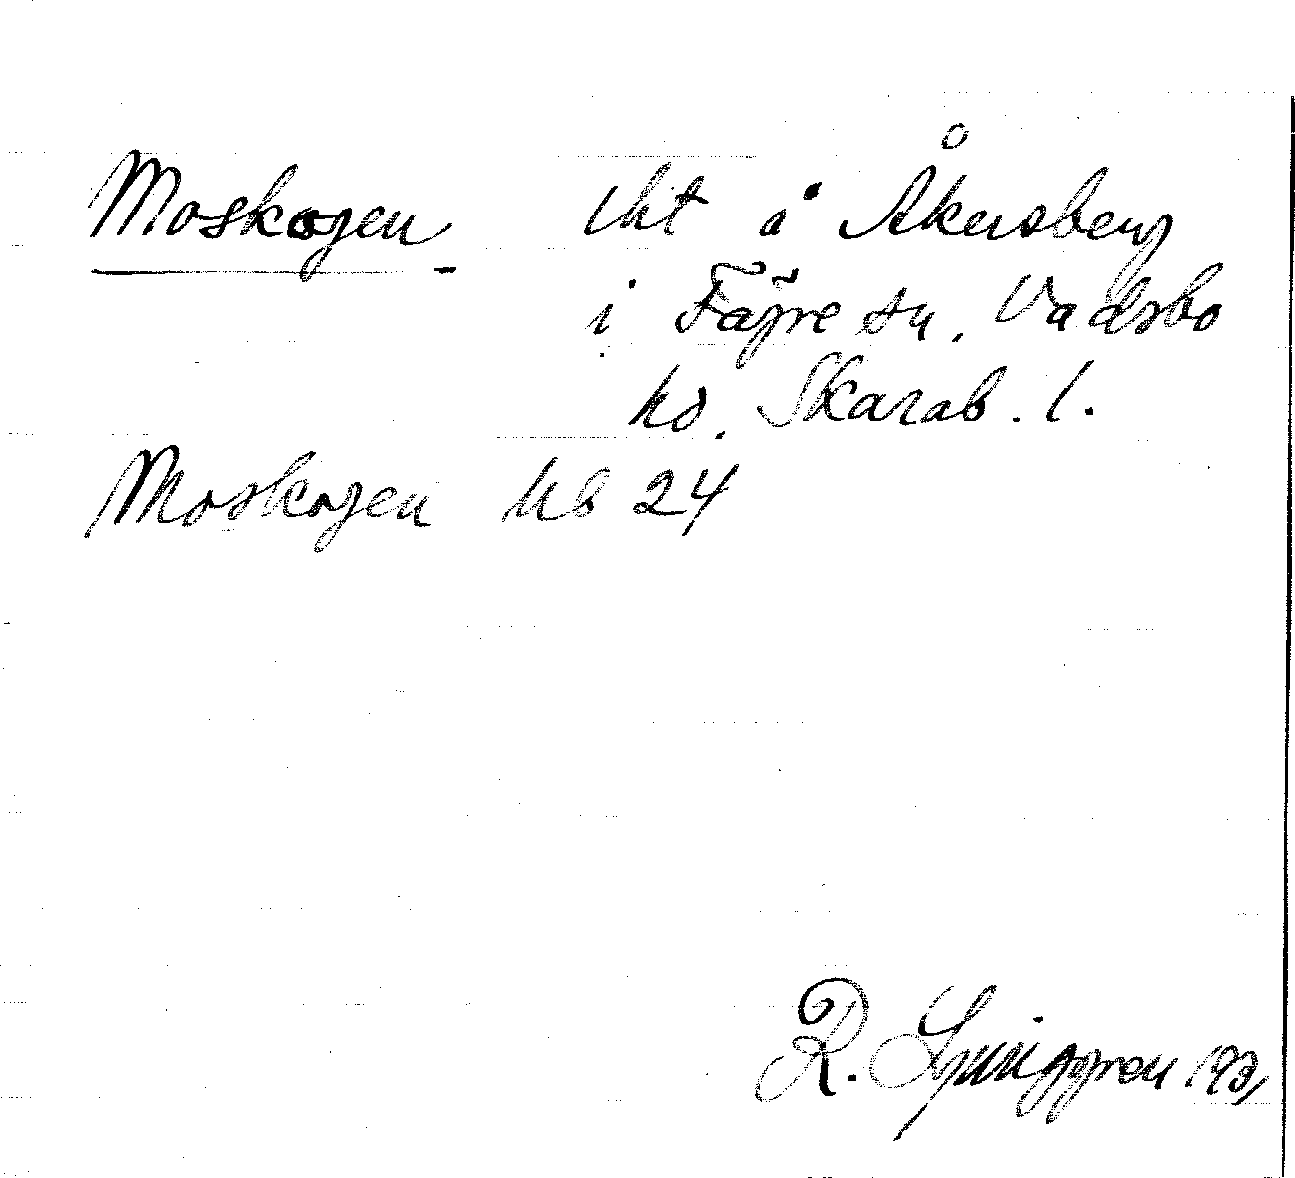 Moskogen lht å Åkersberg
i Fägre sn, Vadsbo
hd. Skarab. l.
Moskogen Hb 24
R. Ljunggren 1931